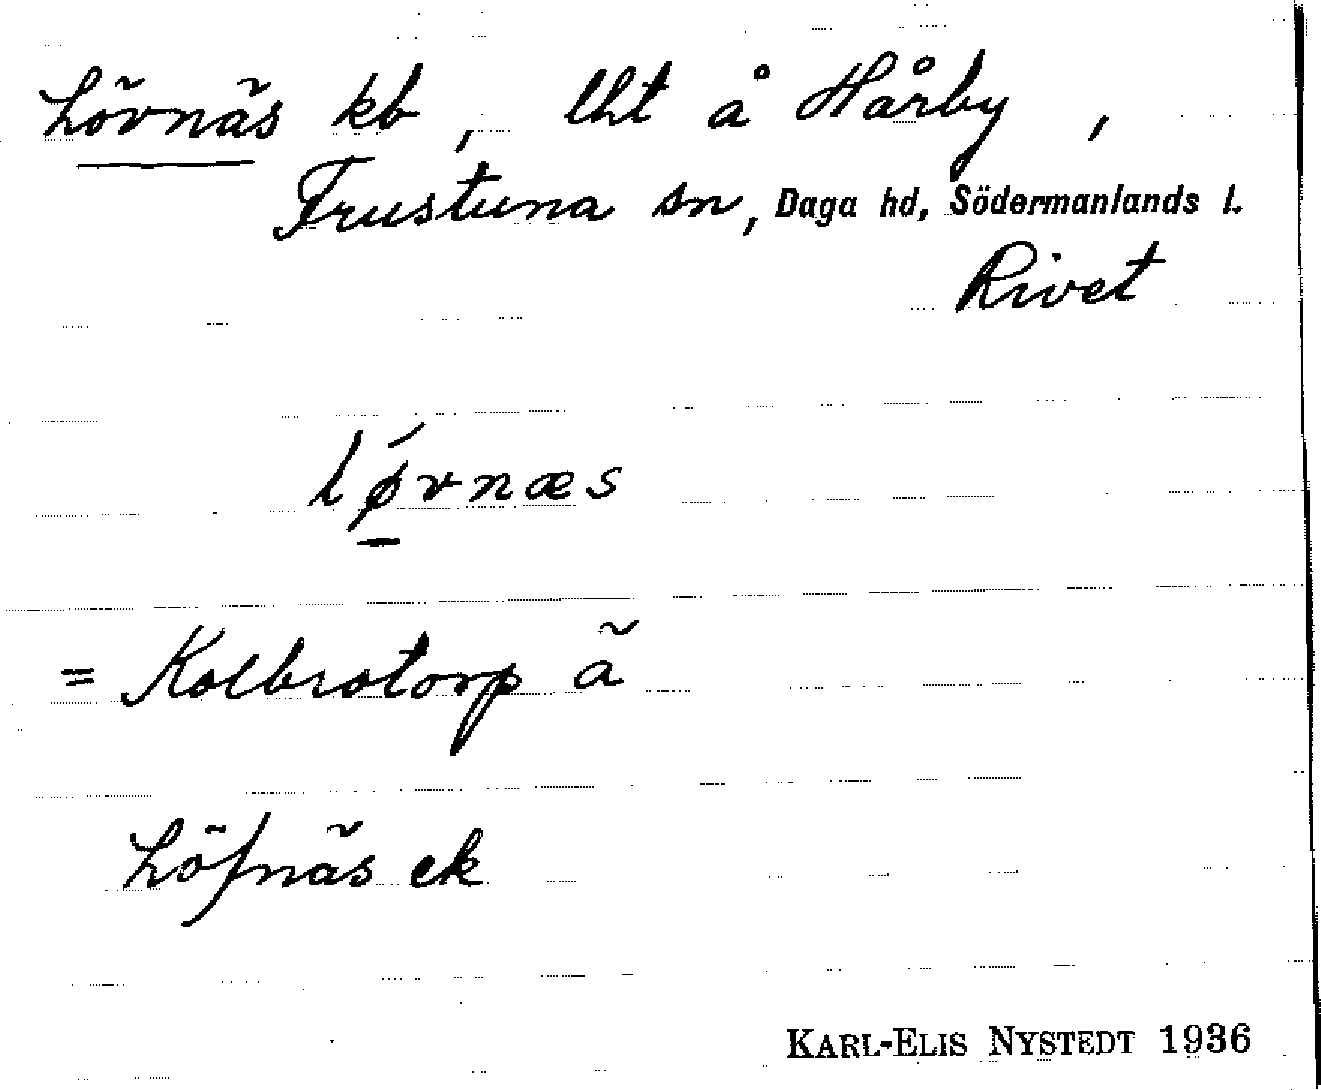 Lövnäs kb, lht å Hårby,
Frustuna sn, Daga hd, Södermanlands l.
Rivet
lǿvnæs
= Kolbrotorp ä
Löfnäs ek
KARL-ELIS NYSTEDT 1936